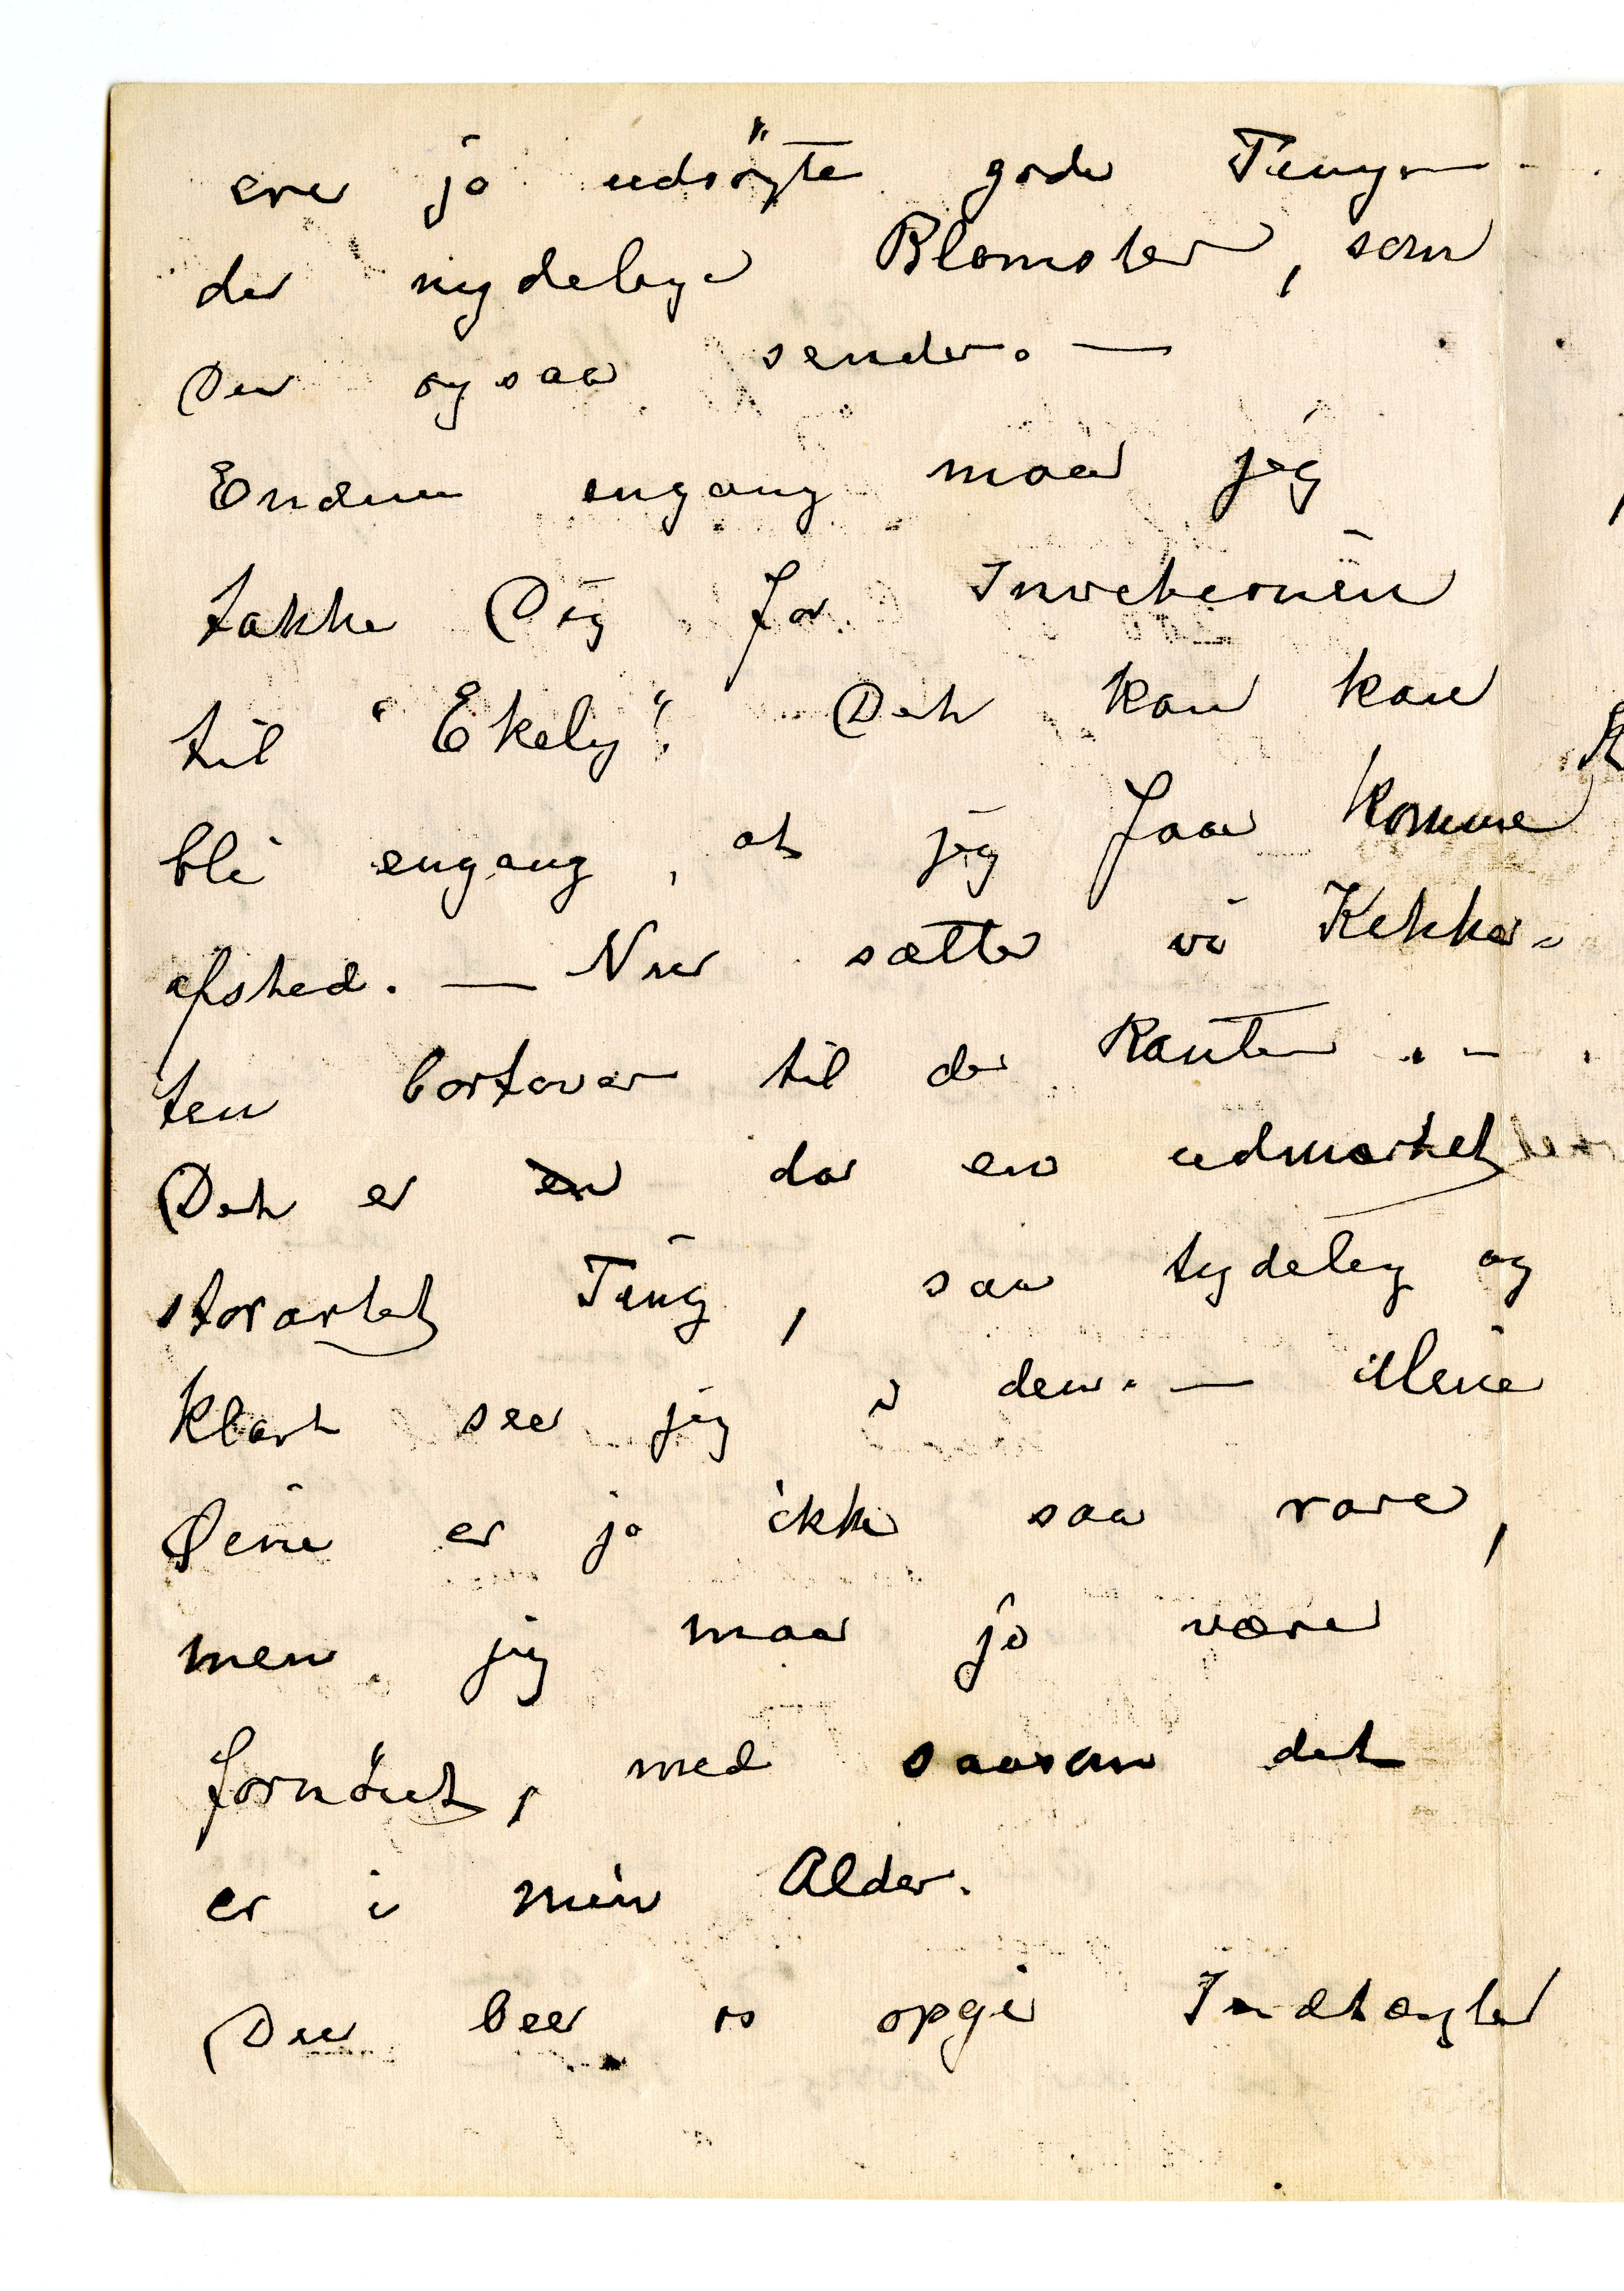 ere jo udsögte gode Ting –
de nydelige Blomster, som
Du ogsaa sender. —
Endnu engang maa jeg
takke Dig for Invitationen
til "Ekely". Det kan kan
bli engang, at jeg faar komme
afsted. — Nu sætter vi Kikker-
ten bortover til de Kanter. –
Det er en dar en udmærket
storartet Ting, saa tydelig og
klart seer jeg i den. — Mine
Øine er jo ikke saa rare,
men jeg maa jo være
fornöiet, med saasom det
er i min Alder.
Du beer os opgi Indtægter